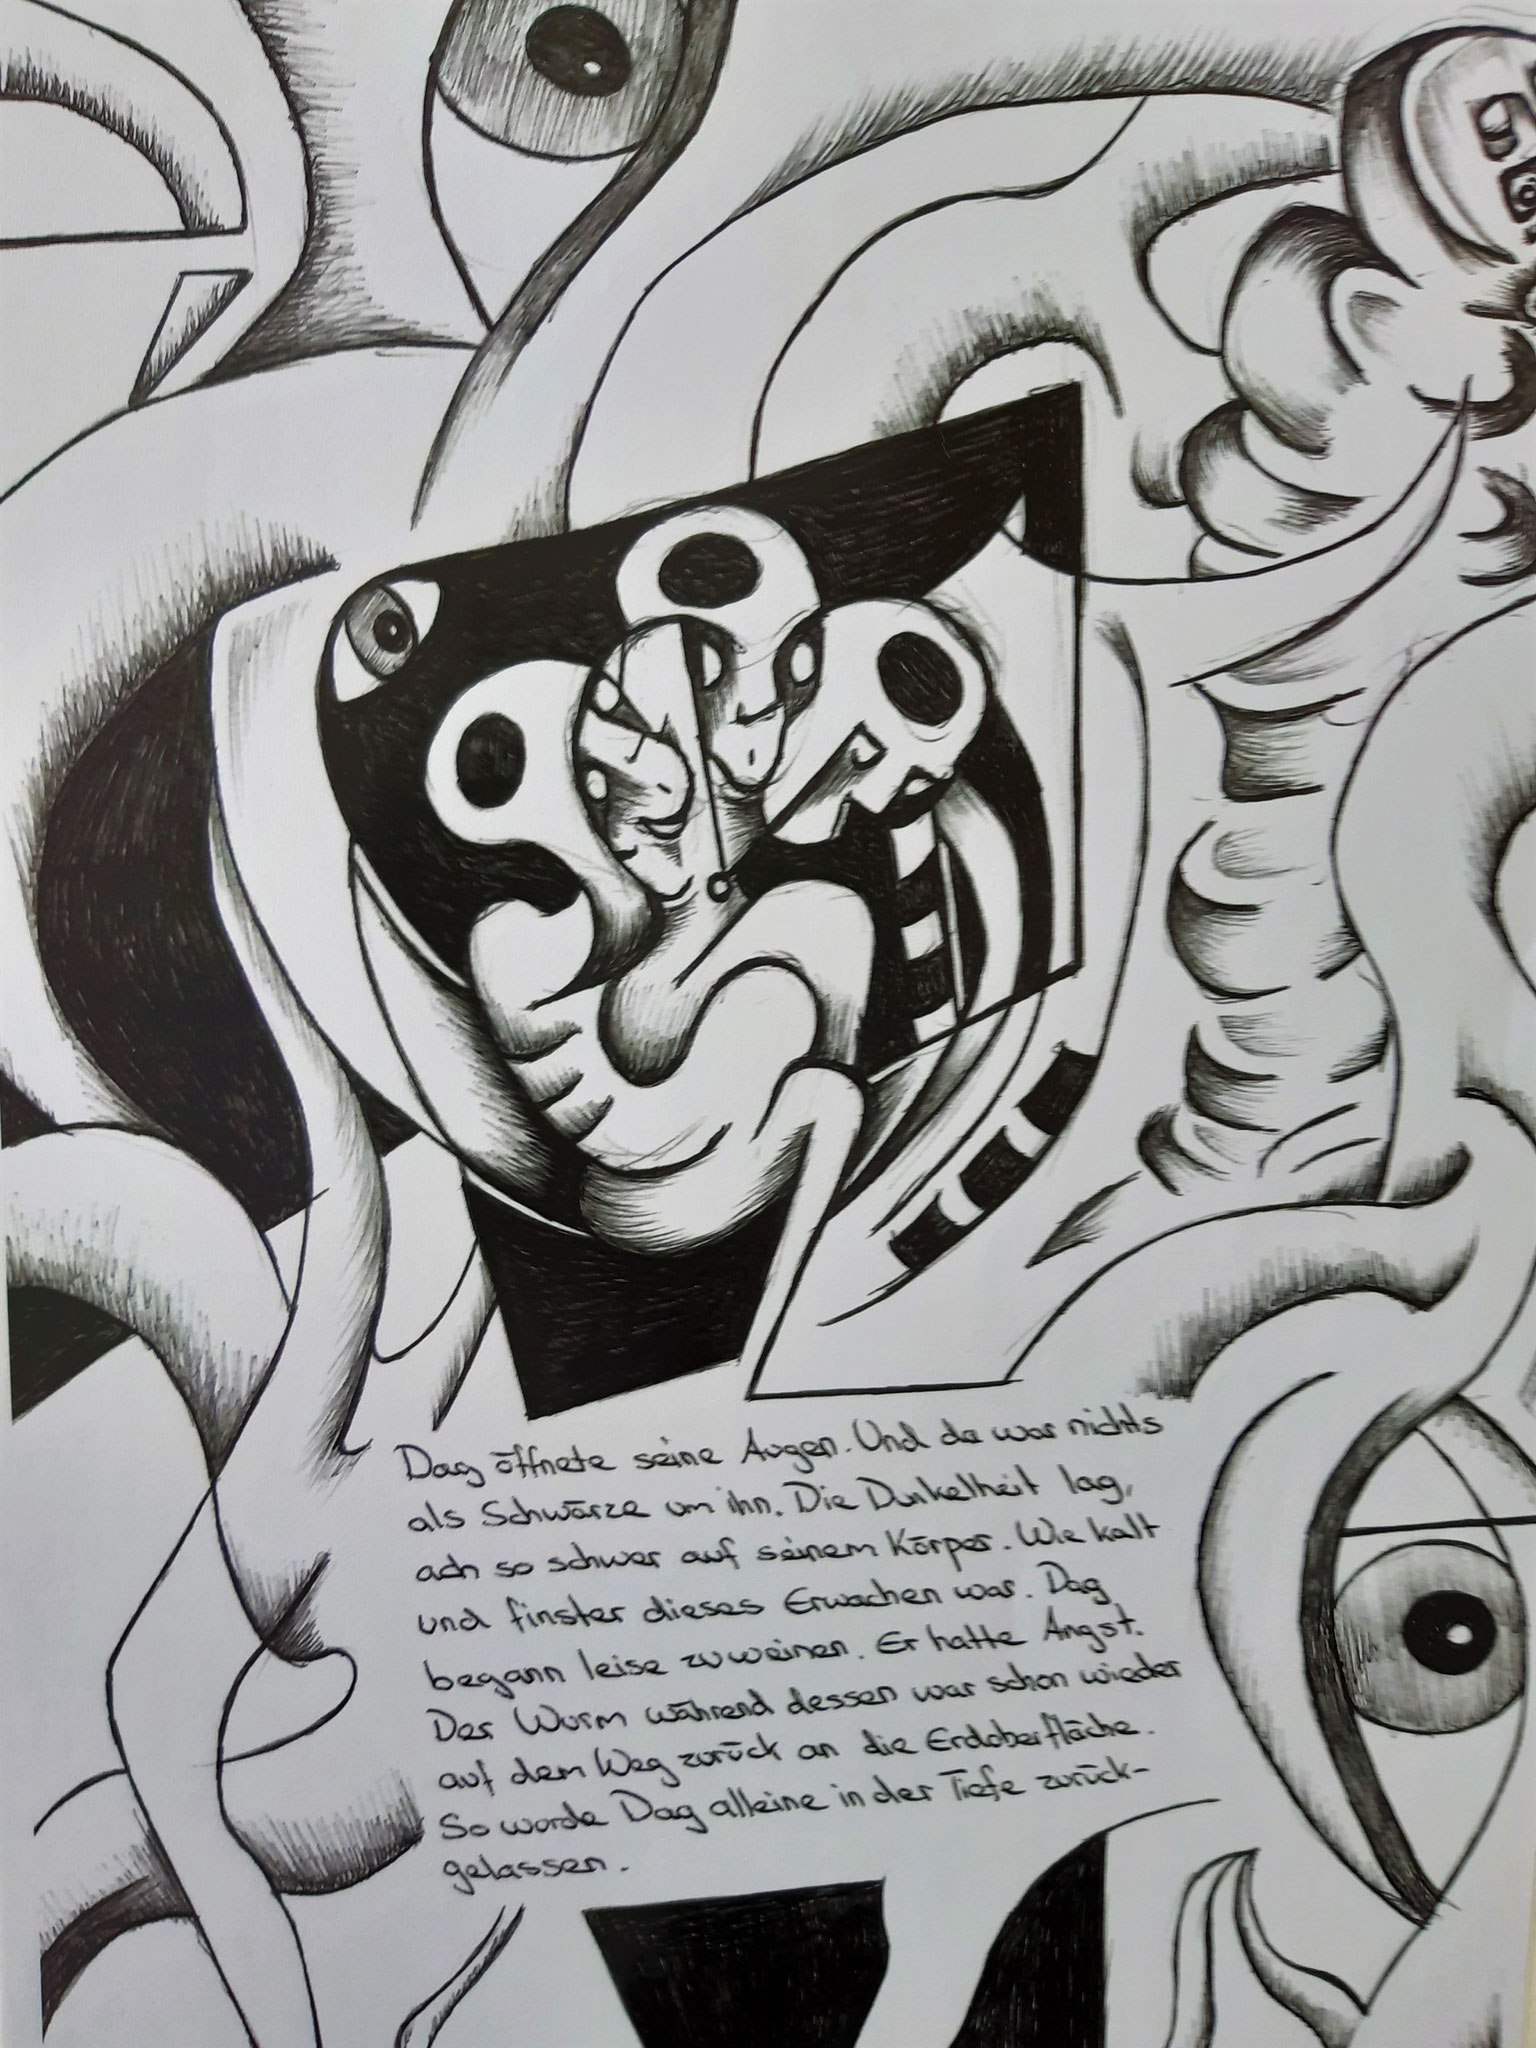 Dag öffnete seine Augen. Und da war nichts
als Schwärze um ihn. Die Dunkelheit lag,
ach so schwer auf seinem Körper. Wie kalt
und finster dieses Erwachen war. Dag
begann leise zu weinen. Er hatte Angst.
Der Wurm während dessen war schon wieder
auf dem Weg zurück an die Erdoberfläche.
So wurde Dag alleine in der Tiefe zurück-
gelassen.